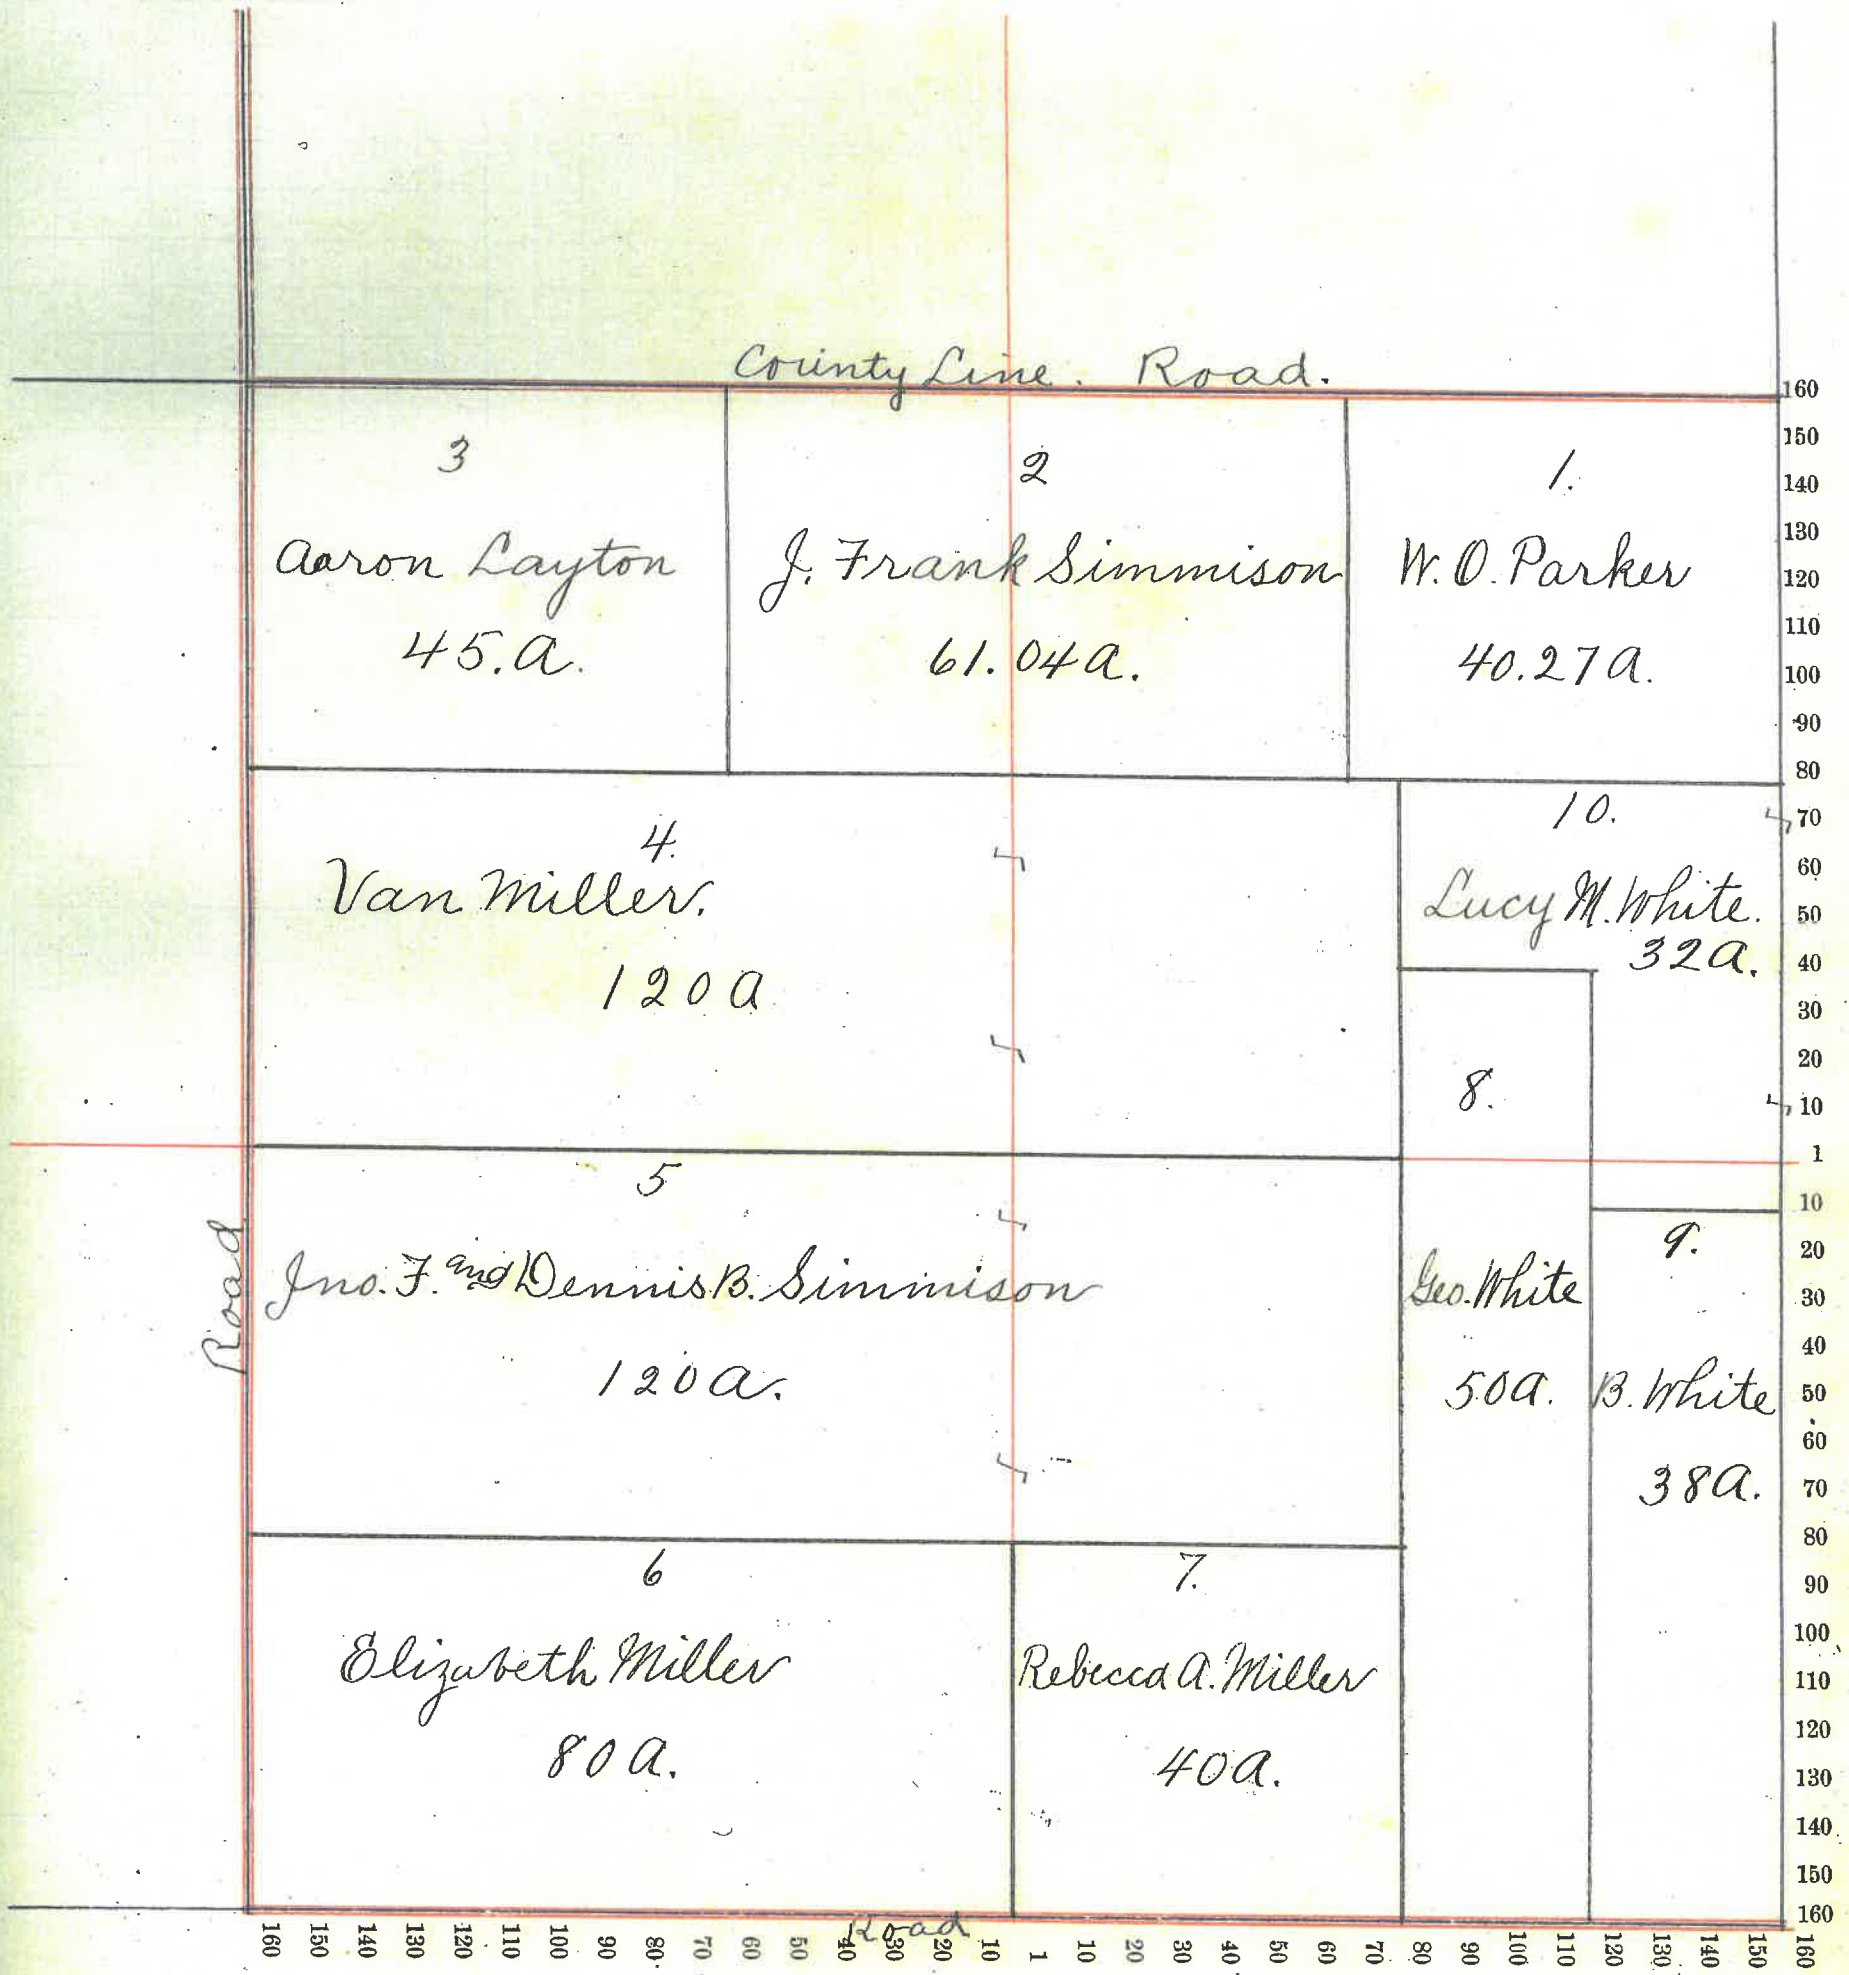 County Line. Road.
3
Aaron Layton
45.a.
2
J. Frank Simmison
61.04a.
1.
W. O. Parker
40.27a.
4.
Van Miller.
120a
10.
Lucy M. White.
32a.
8.
Geo. White
50a.
5
Jno. F. and Dennis B. Simmison
120a.
9.
B. White
38a.
6
Elizabeth Miller
80a.
7.
Rebecca A. Miller
40a.
Road
Road
160
150
140
130
120
110
100
90
80
70
60
50
40
30
20
10
1
10
20
30
40
50
60
70
80
90
100
110
120
130
140
150
160
160 150 140 130 120 110 100 90 80 70 60 50 40 30 20 10 1 10 20 30 40 50 60 70 80 90 100 110 120 130 140 150 160